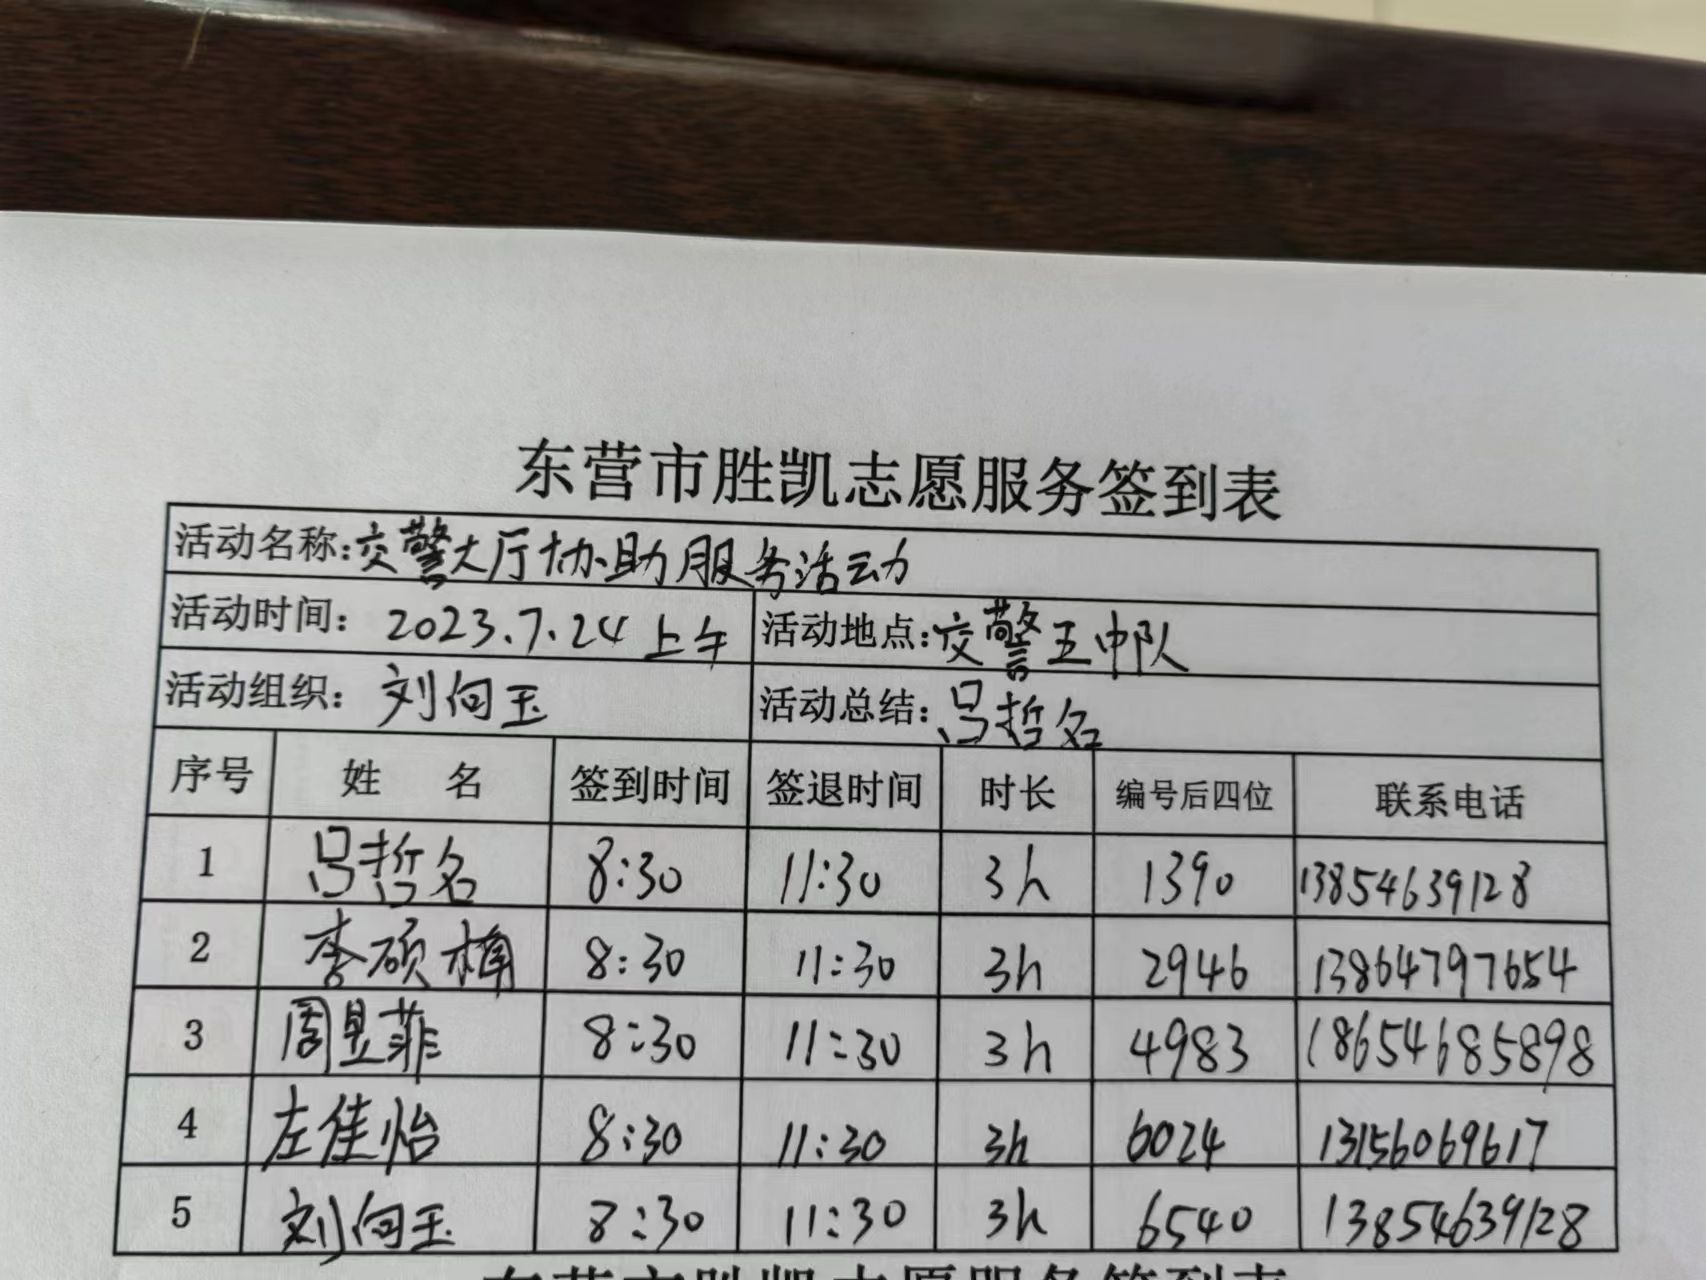 东营市胜凯志愿服务签到表
活动名称:交警大厅协助服务活动
活动时间: 2023.7.24 上午 活动地点:交警五中队
活动组织: 刘向玉 活动总结:吕哲名
序号 姓名 签到时间 签退时间 时长 编号后四位 联系电话
1 吕哲名 8:30 11:30 3h 1390 13854639128
2 李硕 8:30 11:30 3h 2946 13864797654
3 周昱菲 8:30 11:30 3h 4983 18654685898
4 左佳怡 8:30 11:30 3h 6024 13156069617
5 刘向玉 8:30 11:30 3h 6540 13854639128
东营市胜凯志愿服务签到表